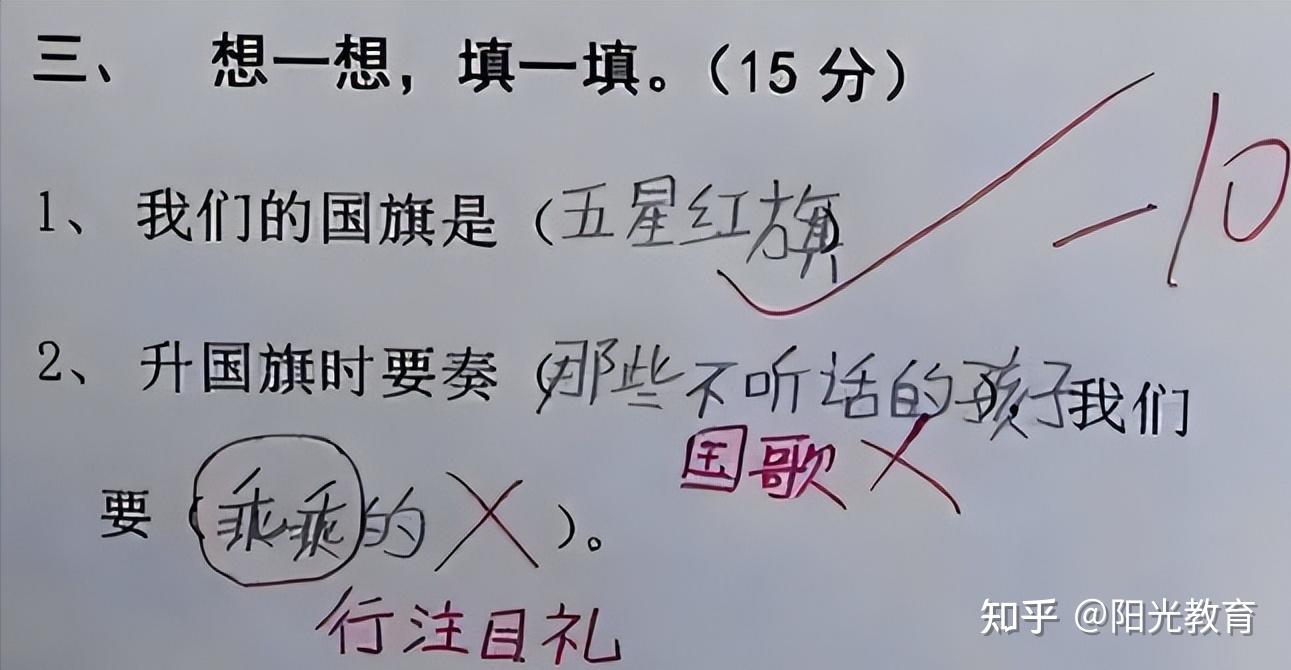 三、 想一想，填一填。（15 分）
1、 我们的国旗是（五星红旗）
-10
2、 升国旗时要奏（那些不听话的孩子我们
国歌
要（乖乖的）。
行注目礼
知乎 @阳光教育